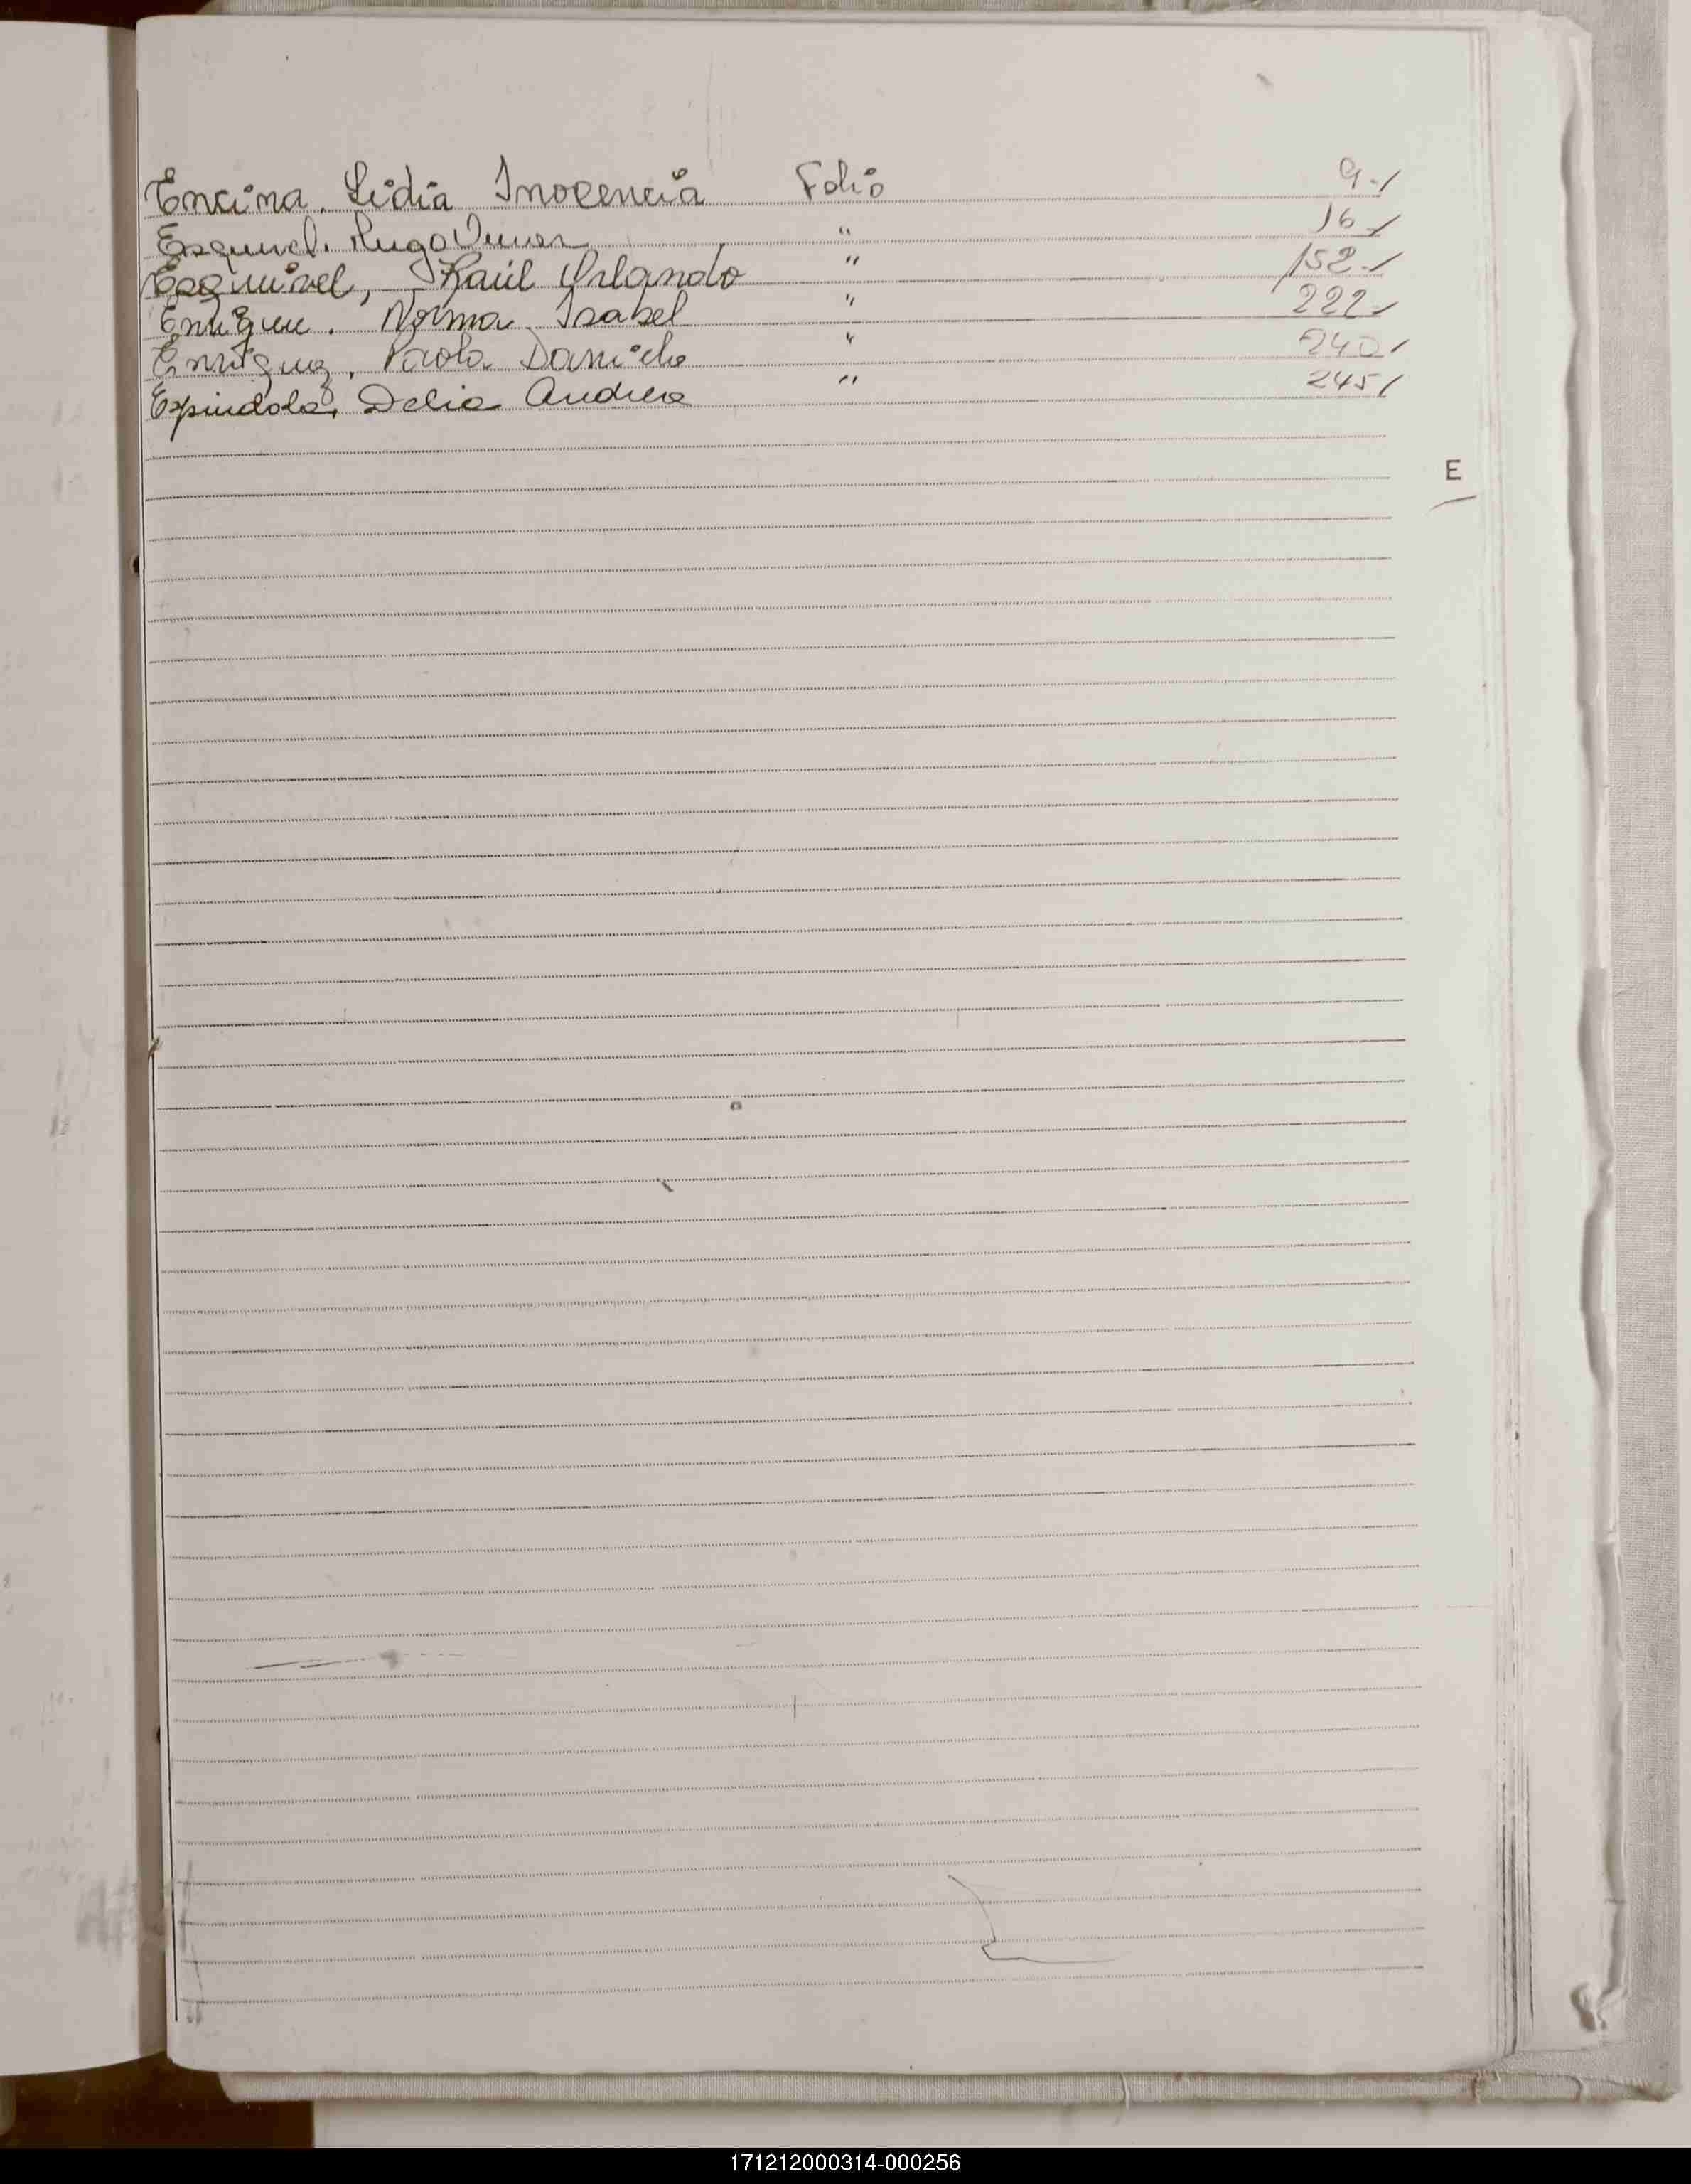 Encina, Lidia Inocencia Folio 9-/
Esquivel, Hugo Omar " 16-/
Esquivel, Raúl Orlando " 152-/
Enrique. Norma Isabel " 222-/
Enriquez, Paola Daniela " 240/
Espindola, Delia Andrea " 245/
E
171212000314-000256